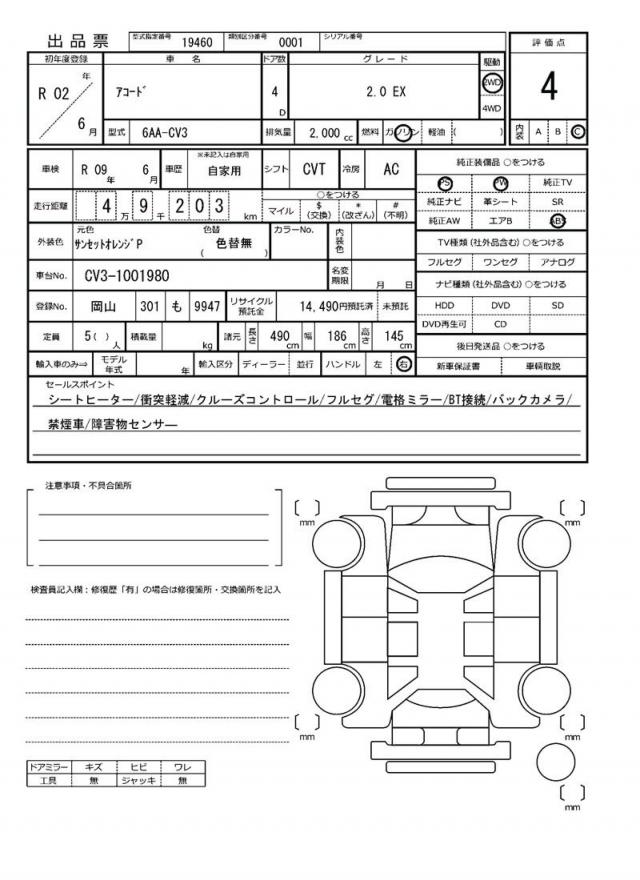 出品票 型式指定番号 19460 類別区分番号 0001 シリアル番号
評価点
4
内装 A B C
初年度登録 車名 ドア数 グレード 駆動
R 02 年 6 月
アコード 4 D 2.0 EX 2WD 4WD
型式 6AA-CV3 排気量 2,000 cc 燃料 ガソリン 軽油 ( )
車検 R 09 年 6 月 車歴 ※未記入は自家用 自家用 シフト CVT 冷房 AC
走行距離 4 万 9 千 2 0 3 km
○をつける
マイル $ (交換) * (改ざん) # (不明)
外装色 元色 サンセットオレンジP 色替 ( 色替無 ) カラーNo. 内装色
車台No. CV3-1001980 名変期限 月 日
登録No. 岡山 301 も 9947 リサイクル預託金 14,490円預託済 未預託
定員 5( ) 人 積載量 kg 諸元 長さ 490 cm 幅 186 cm 高さ 145 cm
輸入車のみ⇒ モデル年式 年 輸入区分 ディーラー 並行 ハンドル 左 右
純正装備品 ○をつける
PS PW 純正TV
純正ナビ 革シート SR
純正AW エアB ABS
TV種類 (社外品含む) ○をつける
フルセグ ワンセグ アナログ
ナビ種類 (社外品含む) ○をつける
HDD DVD SD
DVD再生可 CD
後日発送品 ○をつける
新車保証書 車輌取説
セールスポイント
シートヒーター/衝突軽減/クルーズコントロール/フルセグ/電格ミラー/BT接続/バックカメラ/
禁煙車/障害物センサー
注意事項・不具合箇所
検査員記入欄：修復歴「有」の場合は修復箇所・交換箇所を記入
mm
mm
mm
mm
mm
ドアミラー キズ ヒビ ワレ
工具 無 ジャッキ 無